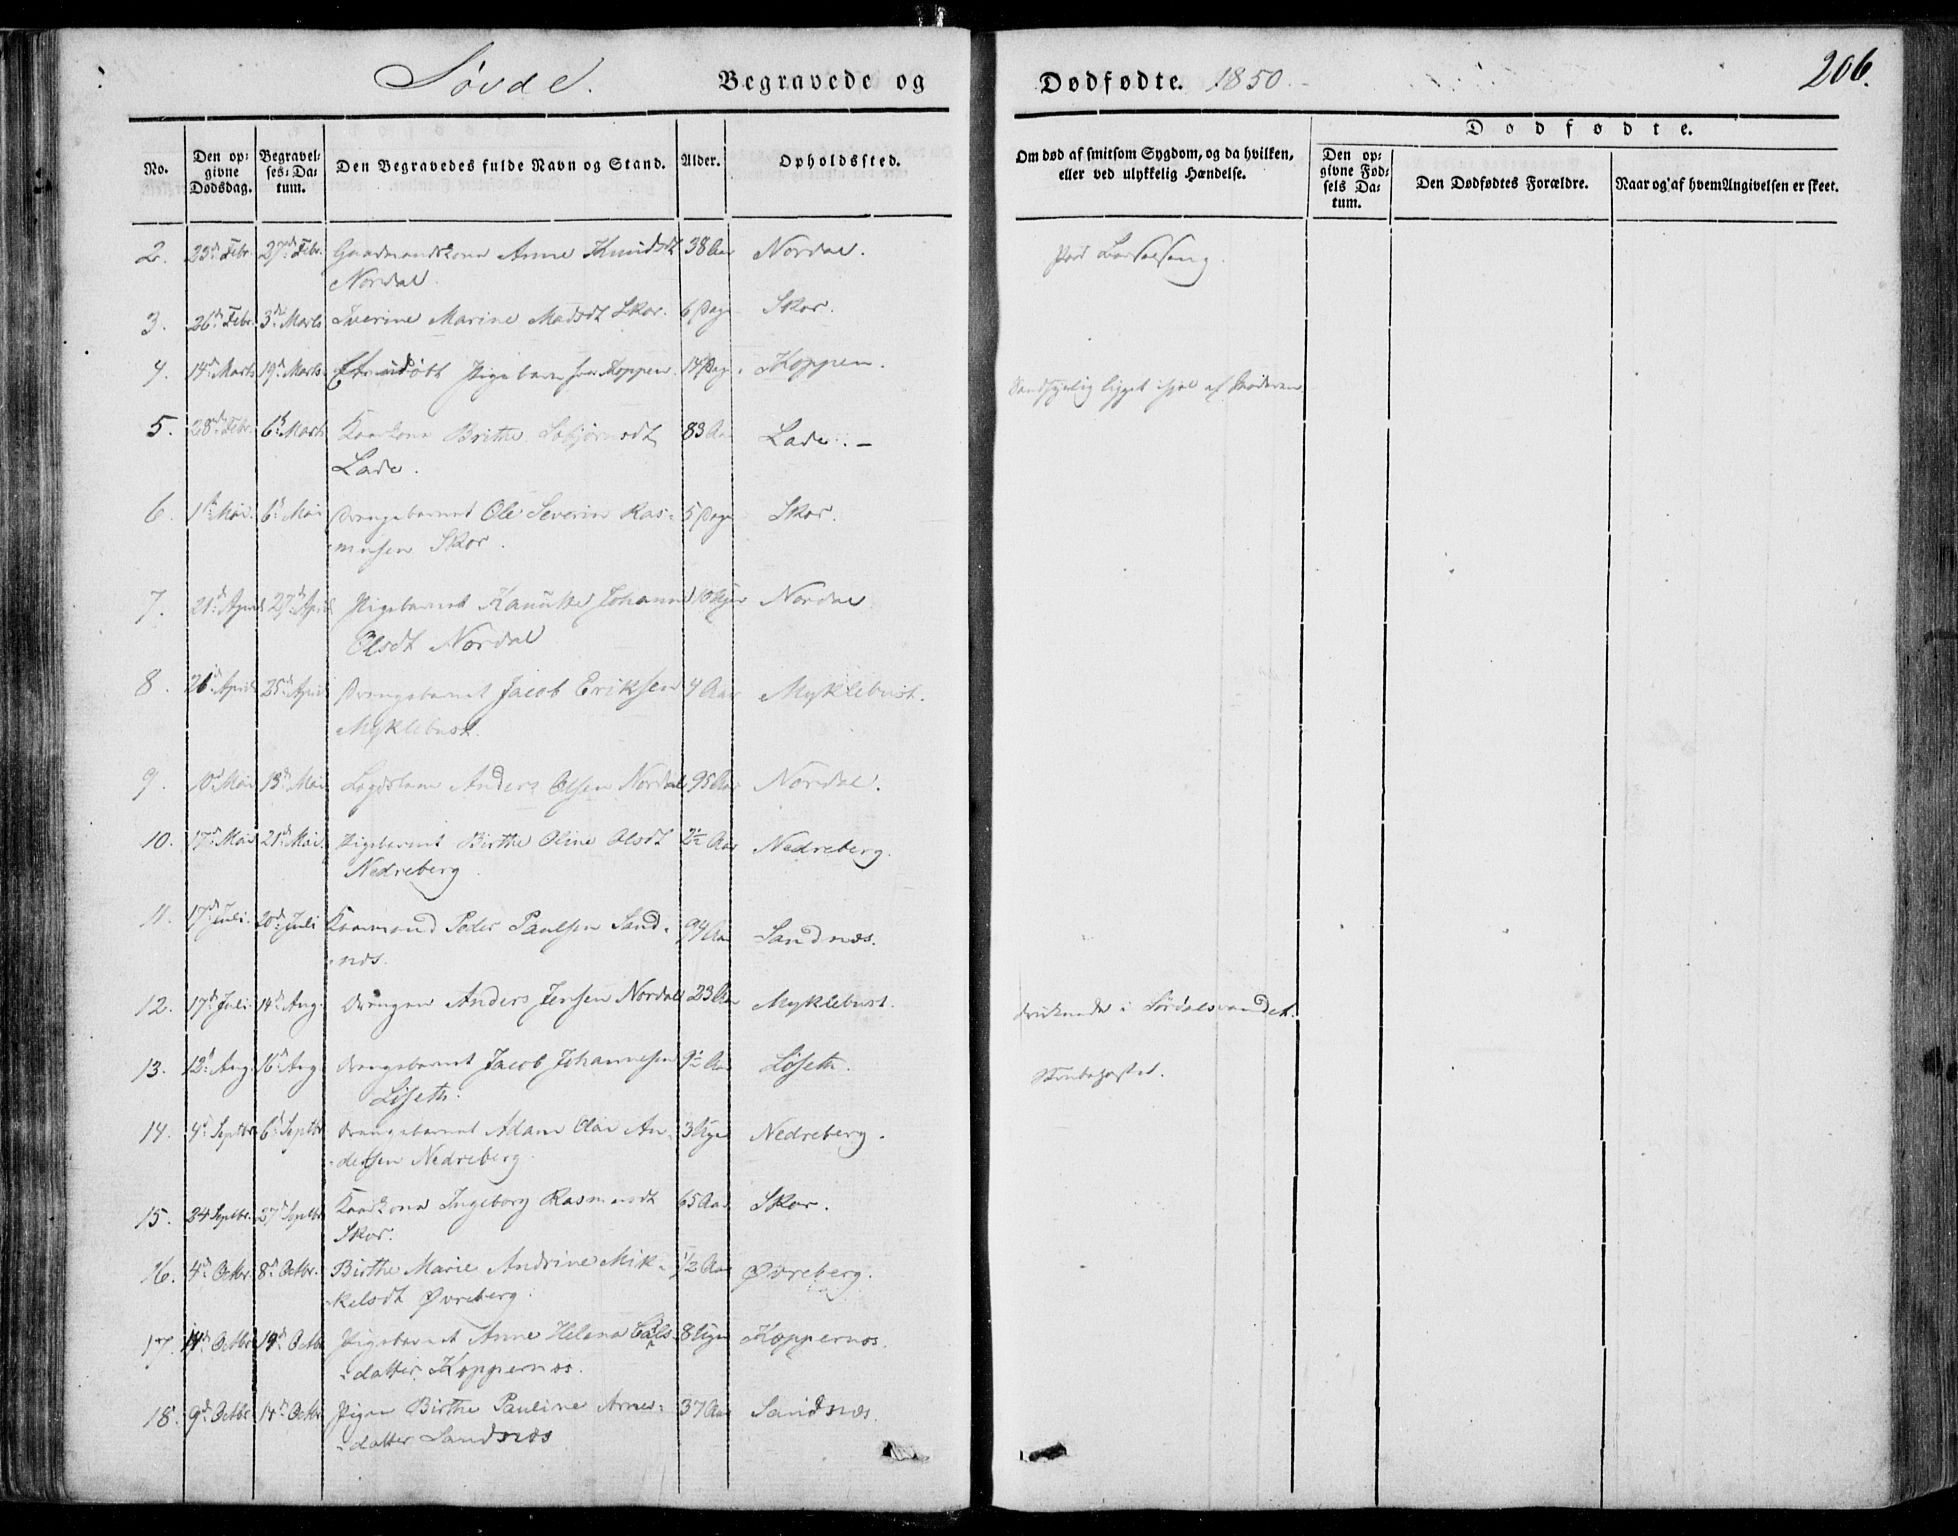 Søvde. Begravede og Dødfødte. 1850. 206.
Dødfødte.
No.
Den opgivne Dødsdag.
Begravelses-Datum.
Den Begravedes fulde Navn og Stand.
Alder.
Opholdssted.
Om død af smitsom Sygdom, og da hvilken, eller ved ulykkelig Hændelse.
Den opgivne Fødsels Datum.
Den Dødfødtes Forældre.
Naar og af hvem Angivelsen er skeet.
2. 23d Febr. 27d Febr. Gaardmandskone Anne Knudsdt 38 Aar Nordal. Paa Barselseng.
Nordal.
3. 26d Febr. 3d Marts Iverine Marine Madsdt Skor. 6 Dage Skor.
4. 14d Marts 19d Marts Et udøbt Pigebarn fra Koppen. 14 Dage. Koppen. ligget ihjel af Moderen
5. 28d Febr. 6t Marts Kaarkone Brithe 83 Aar Lade. –
Lade.
6. 1t Mai. 6t Mai Drengebarnet Ole Severin Ras- 5 Dage Skor.
-musen Skor.
7. 21d April 27d April Pigebarnet Johanne 10 Uger Nordal
Olsdt Nordal
8. 21d April 25d April Drengebarnet Jacob Eriksen 4 Aar Myklebust.
Myklebust.
9. 10d Mai 13d Mai Lægdslem Anders Olsen Nordal 95 Aar Nordal.
10. 17d Mai 21d Mai. Pigebarnet Birthe Oline Olsdt 2½ Aar Nedreberg.
Nedreberg.
11. 17d Juli. 20d Juli Kaarmand Peder Paulsen Sand- 94 Aar Sandnæs.
-næs.
12. 17d Juli. 14d Aug. Drengen Anders Jensen Nordal 23 Aar Myklebust. druknede i Sørdalsvandet.
13. 12d Aug. 16d Aug. Drengebarnet Jacob Johannesen 9½ Aar Løseth. Strubehoste.
Løseth.
14. 4d Septbr 6d Septbr Drengebarnet Adam Olai An- 3 Uger Nedreberg.
-dersen Nedreberg.
15. 24 Septbr. 27d Septbr Kaarkone Ingeborg Rasmusdt 65 Aar Skor.
Skor.
16. 4d Octbr. 8d Octbr. Birthe Marie Andrine Mik- ½ Aar Øvreberg.
-kelsdt Øvreberg.
17. 14d Octbr. 19d Octbr Pigebarnet Anne Helena 8 Uger Koppernæs.
-datter Koppernæs.
18. 9d Octbr. 14d Octbr. Pigen Birthe Pauline Arnes- 37 Aar Sandnæs.
-datter Sandnæs